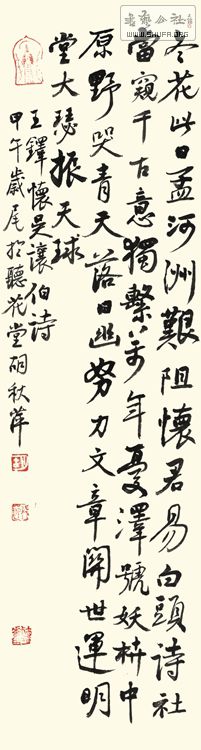 書藝公社
WWW.SHUFA.ORG
冬花此日孟河洲艱阻懷君易白頭詩社
當窺千古意獨繫年憂澤號妖中
原野哭青天落日幽努力文章開世運明
堂大瑟振天球
王鐸懷是讓伯詩
甲午歲尾於聽花堂秋萍